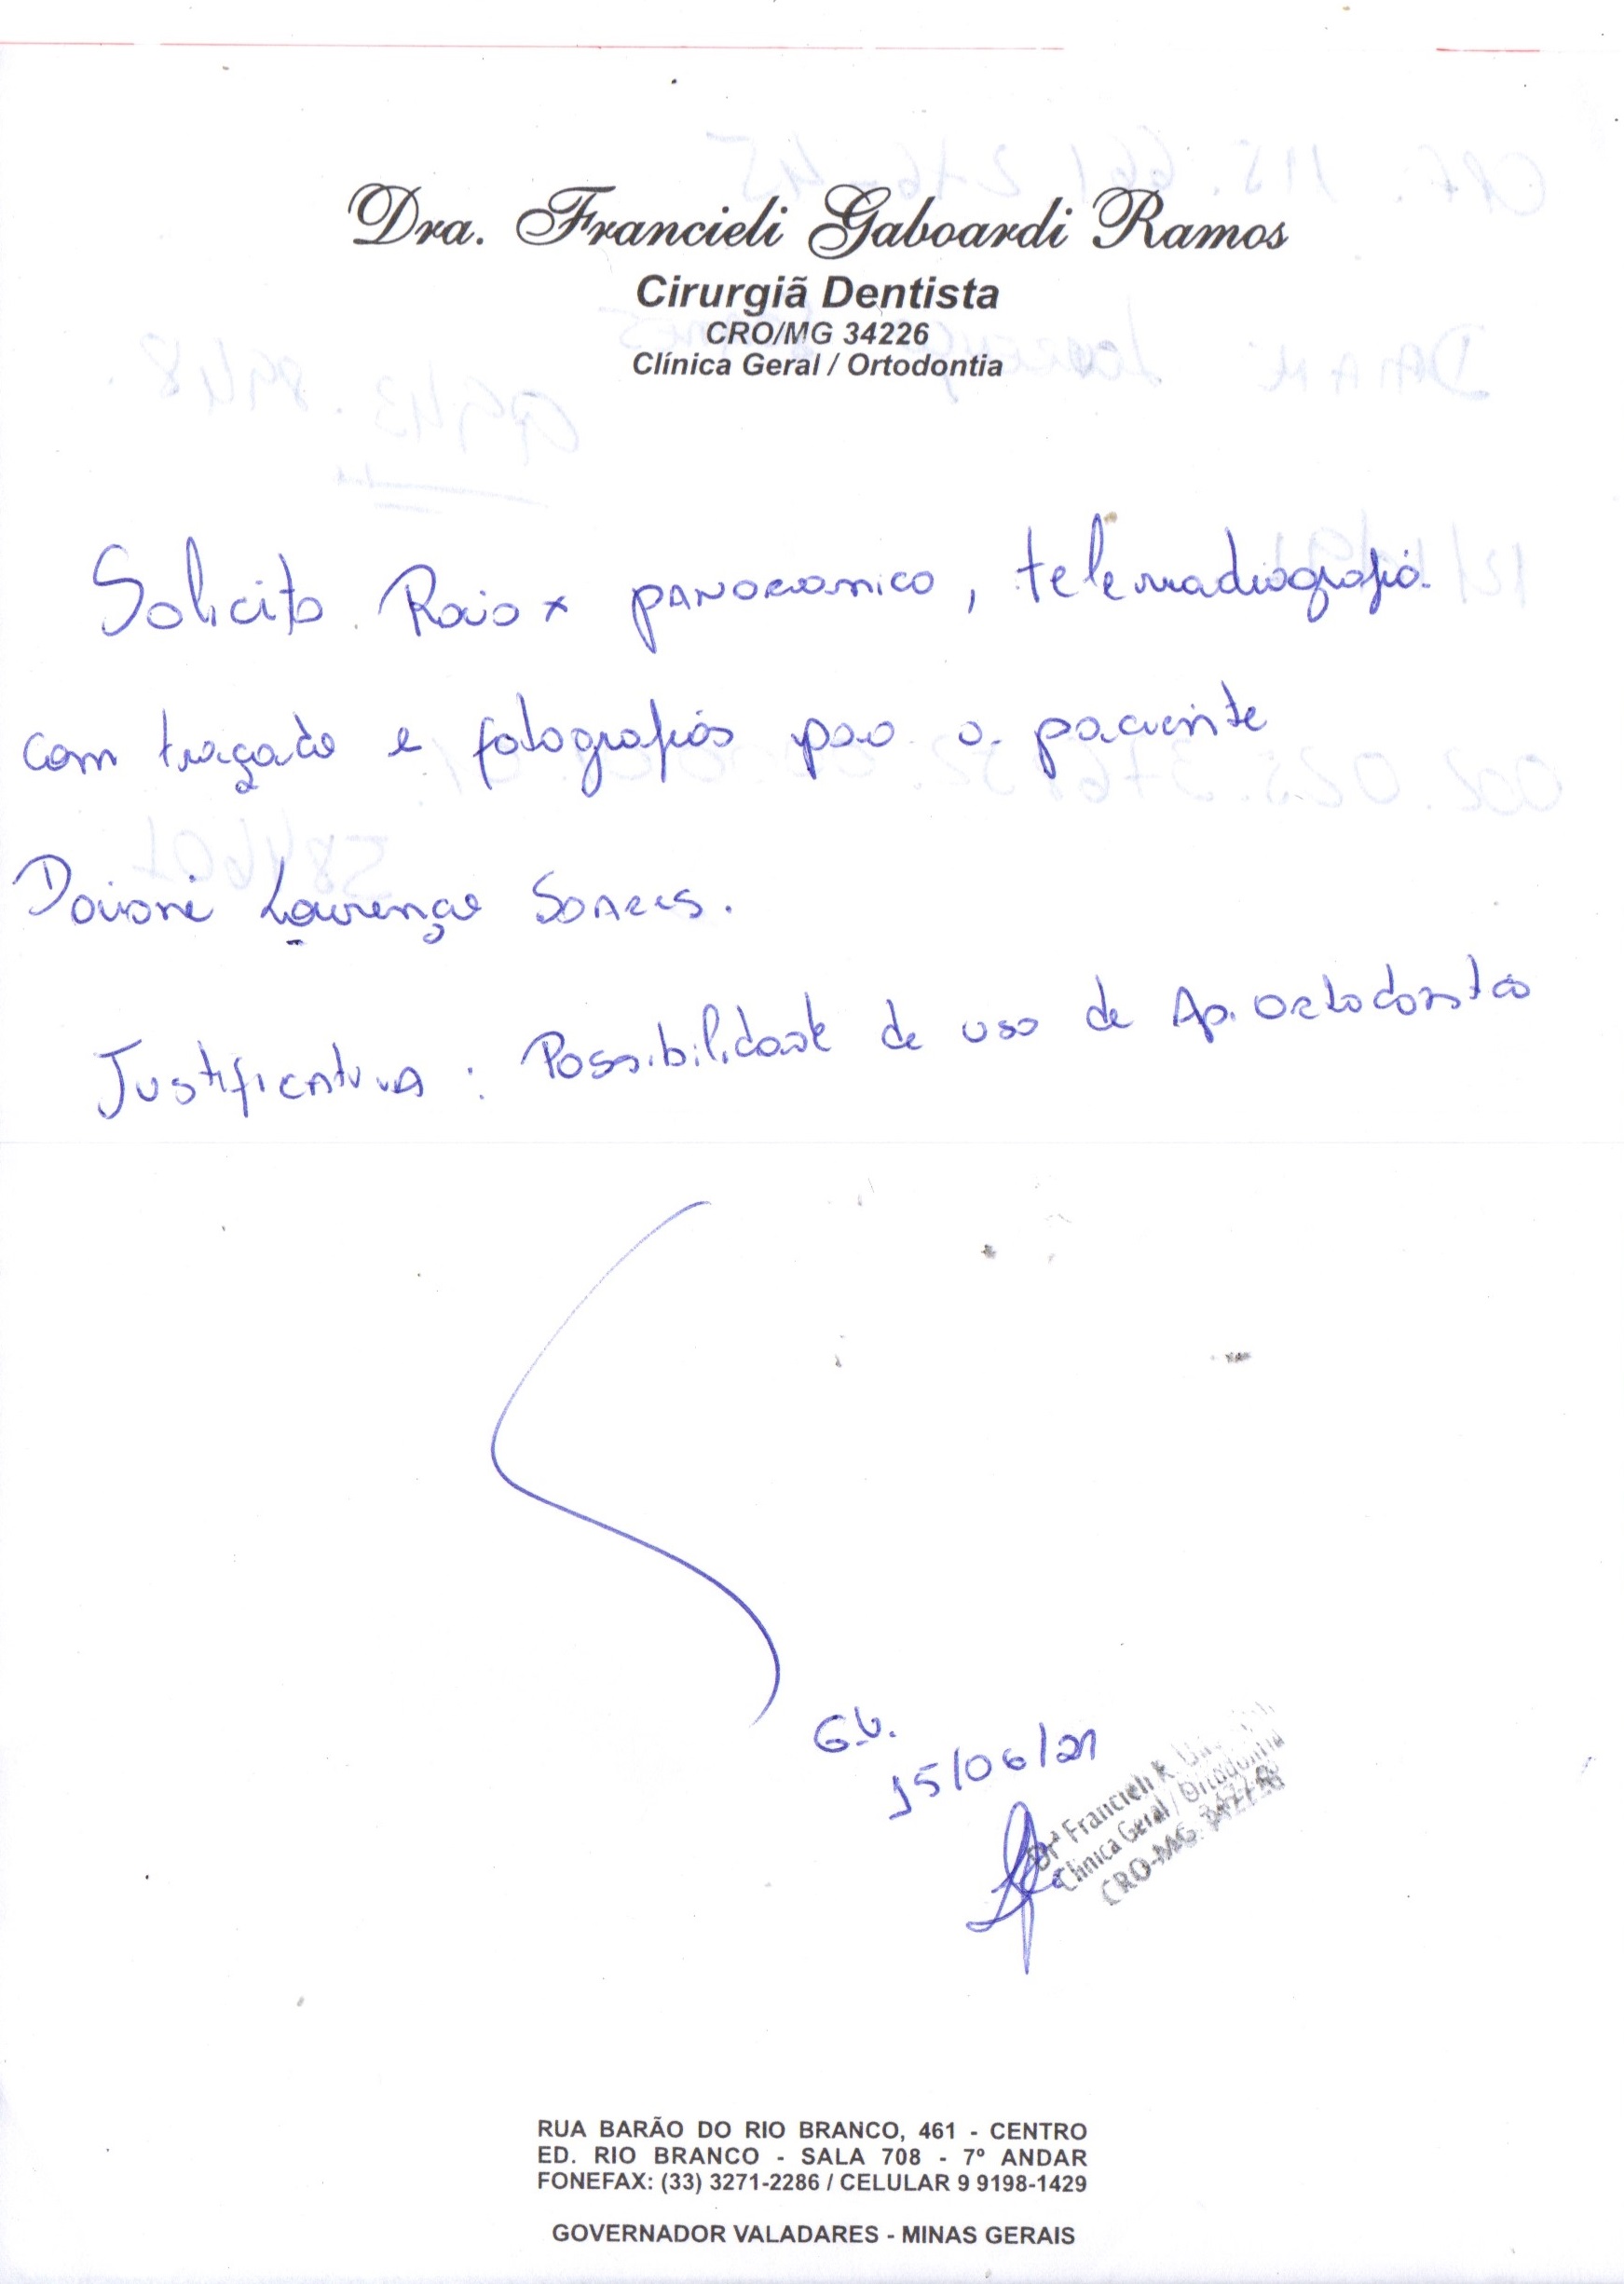 Dra. Francieli Gaboardi Ramos
Cirurgiã Dentista
CRO/MG 34226
Clínica Geral / Ortodontia
Solicito Raio x panoramico, telerradiografia
com traçado e fotografias para o paciente
Daiani Lourenço Soares.
Justificativa : Possibilidade de uso de Ap. Ortodontico
G.V.
15/06/21
Drª Francieli
Clínica Geral / Ortodontia
CRO-MG 34226
RUA BARÃO DO RIO BRANCO, 461 - CENTRO
ED. RIO BRANCO - SALA 708 - 7º ANDAR
FONEFAX: (33) 3271-2286 / CELULAR 9 9198-1429
GOVERNADOR VALADARES - MINAS GERAIS